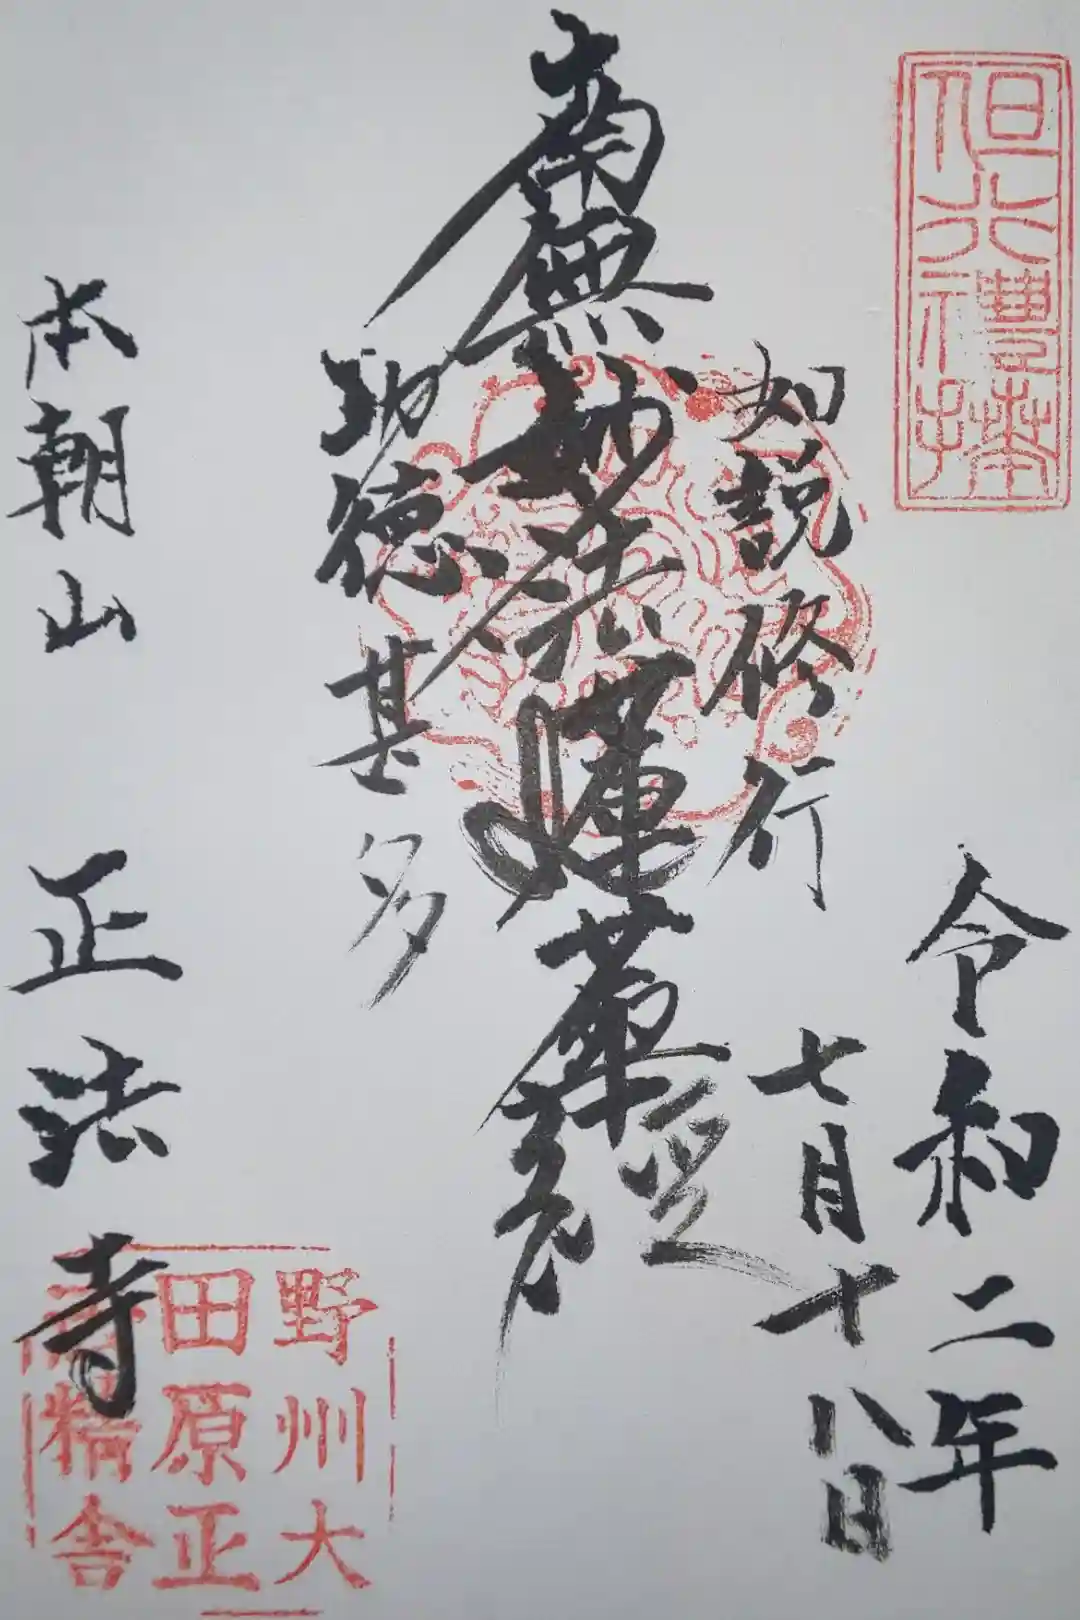 但行禮拝
令和二年
七月十八日
如説修行
南無妙法蓮華經
功徳甚多
本朝山
正法寺
野州大
田原正
精舎